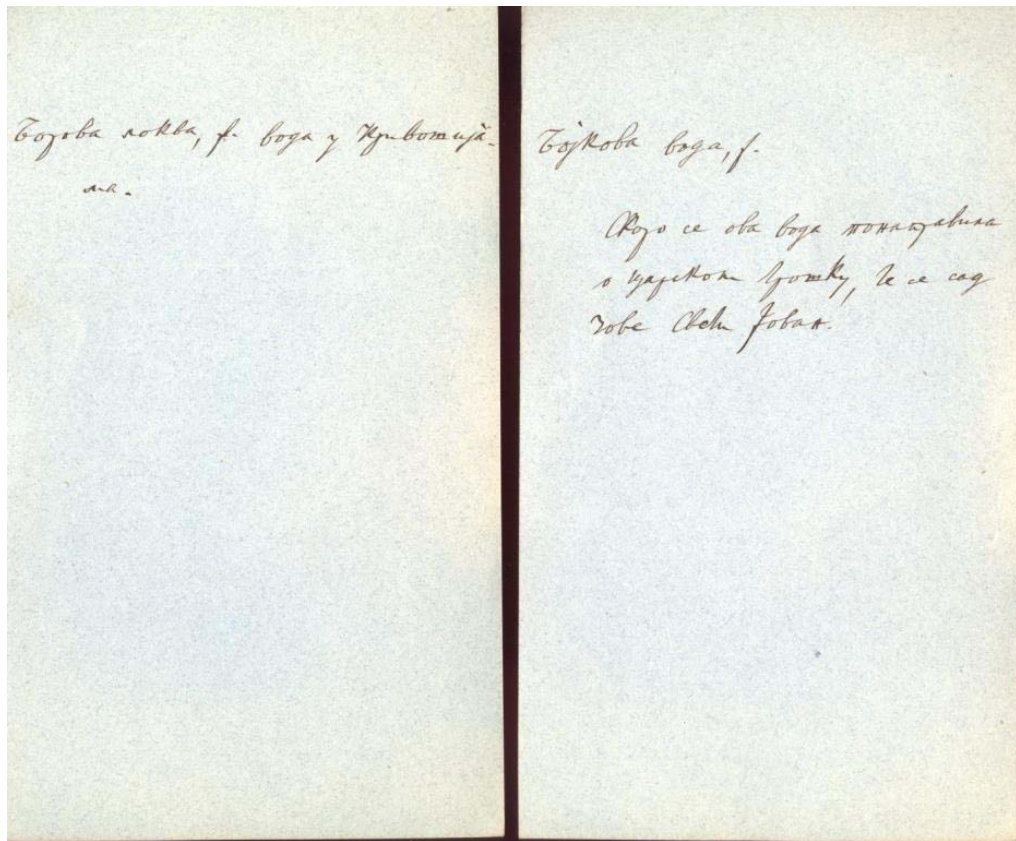 Борова локва, f. вода у Кривотија-
ма.
Бојкова вода, f.
Скоро се ова вода понаправила
о царском трошку, те се сад
зове Свети Јован.